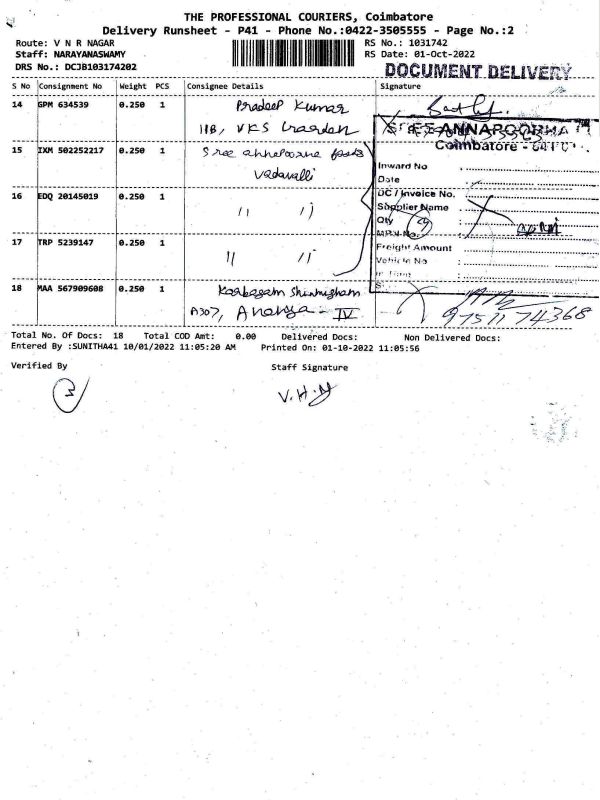 THE PROFESSIONAL COURIERS, Coimbatore
Delivery Runsheet - P41 - Phone No.:0422-3505555 - Page No.:2
Route: V N R NAGAR RS No.: 1031742
Staff: NARAYANASWAMY RS Date: 01-Oct-2022
DRS No.: DCJB103174202 DOCUMENT DELIVERY
S No Consignment No Weight PCS Consignee Details Signature
14 GPM 634539 0.250 1 Pradeep Kumar
11B, VKS Garden
ANNAPOORNA
15 IXM 502252217 0.250 1 Sree annapoorna foods
Coimbatore -
Vadavalli
Inward No
Date
16 EDQ 20145019 0.250 1 " "
DC / Invoice No.
Supplier Name
Qty
17 TRP 5239147 0.250 1 " "
Freight Amount
Vehicle No
In Time
18 MAA 567909608 0.250 1 Karbagam Shunmugham
A307, Ananya - IV
9751174368
Total No. Of Docs: 18 Total COD Amt: 0.00 Delivered Docs: Non Delivered Docs:
Entered By :SUNITHA41 10/01/2022 11:05:20 AM Printed On: 01-10-2022 11:05:56
Verified By Staff Signature
V.H.